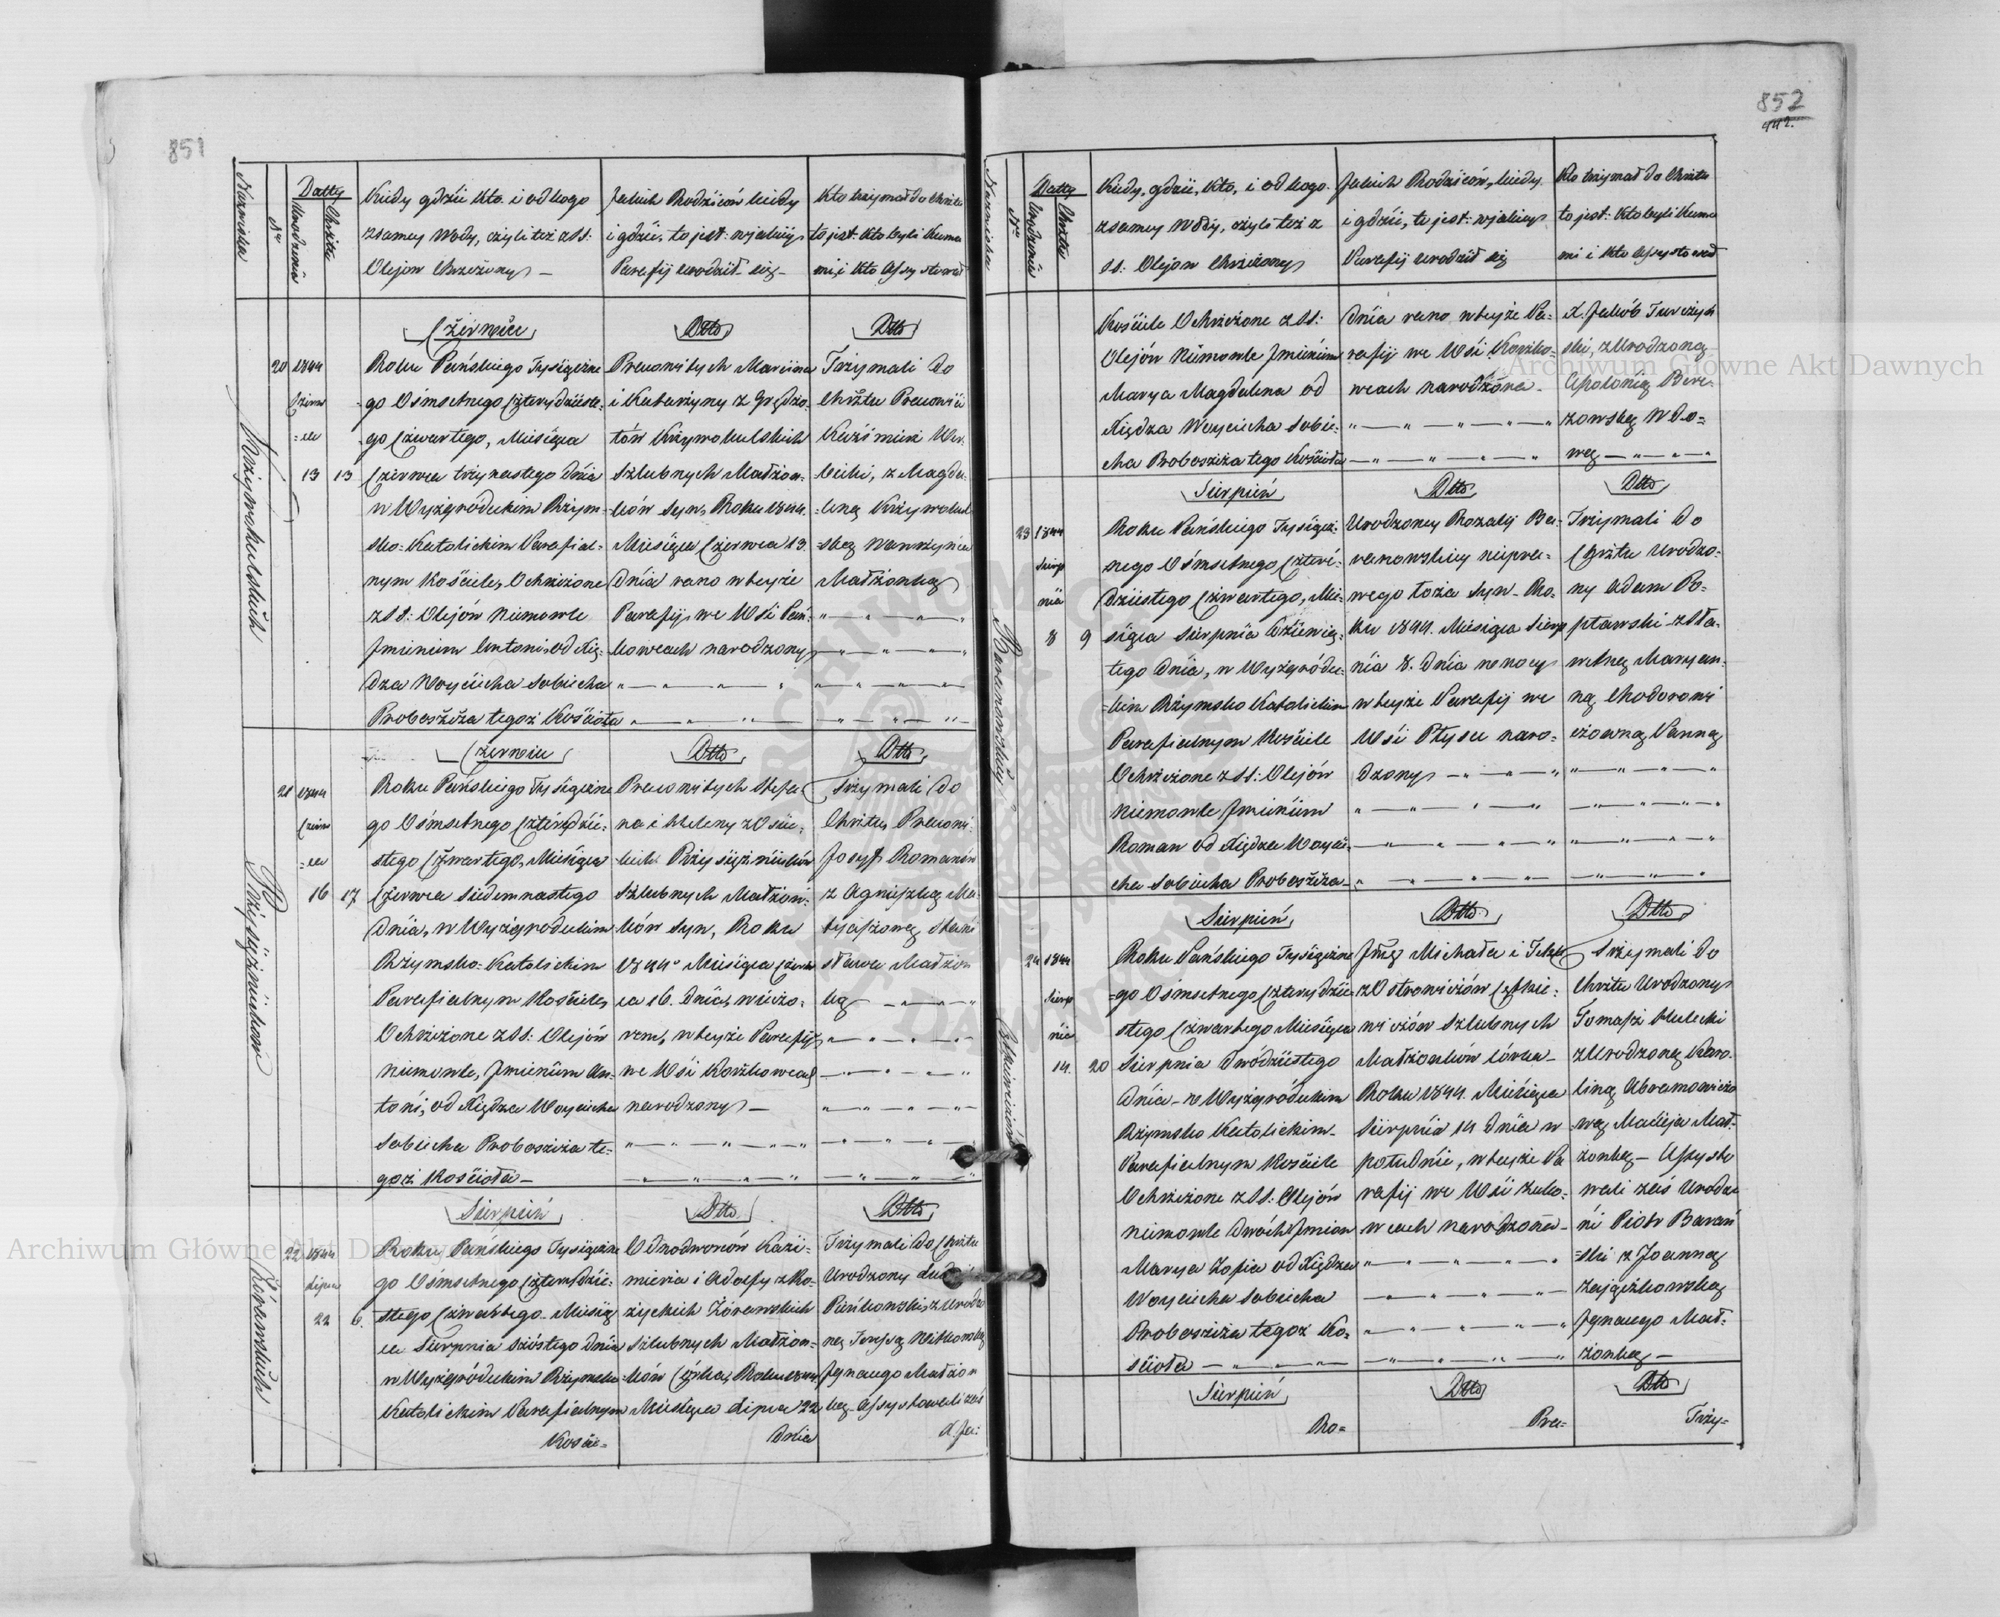 851
Nazwiska
Nr
Datty
Urodzenia
Chrztu
Kiedy gdzie kto i od kogo
z samey Wody, czyli też z SS:
Olejow Chrzczony
Jakich Rodziców kiedy
i gdzie, to jest: w jakiey
Parafij urodził się
Kto trzymał do Chrztu
to jest: Kto byli Kuma
mi i Kto Assystował
Krzywokulskich
20 1844
Czerw
ca
13 13
Czerwiec
Roku Pańskiego Tysiączne
go Ośmsetnego Czterydzieste-
go Czwartego, Miesiąca
Czerwca trzynastego dnia
w Wyżgródeckim Rzym-
sko-Katolickim Parafial-
nym Kościele, Ochrzczone
z SS: Olejów Niemowle
Jmieniem Antoni, od Xię-
dza Woyciecha Sobiecha
Proboszcza tegoż Kościoła
Dtto
Pracowitych Marcina
i Katarzyny z Grędzo-
tów Krzywokulskich
Szlubnych Małżon-
ków Syn, Roku 1844.
Miesiąca Czerwca 13.
Dnia rano w teyże
Parafij, we Wsi Pań-
kowcach narodzony
Dtto
Trzymali do
Chrztu Pracowici
Kaźmierz
z Magda-
leną Krzywokul
ską Wawrzyńca
Małżonką
Przysiężniuków
21 1844
Czerw
ca
16 17
Czerwiec
Roku Pańskiego Tysiączne
go Ośmsetnego Czterdzie-
stego Czwartego, Miesiąca
Czerwca Siedemnastego
Dnia, w Wyżgrodeckim
Rzymsko-Katolickim
Parafialnym Kościele
Ochrzczone z SS: Olejów
Niemowle, Jmieniem An-
toni, od Xiędza Woyciecha
Sobiecha Proboszcza te-
goż Kościoła
Dtto
Pracowitych Stefa-
na i Heleny z Osie-
ckich Przysiężniuków
Szlubnych Małżon-
ków Syn, Roku
1844o Miesiąca Czerw
ca 16. Dnia, wieczo-
rem, w teyże Parafij
we Wsi Koszkowcach
narodzony
Dtto
Trzymali do
Chrztu, Pracowi-
Jozef Romanów
z Agnieszką Ma-
tyjaszową Stani
sława Małżon
ką
Żórawskich
22 1844
Lipca
22 6.
Sierpień
Roku Pańskiego Tysiączne
go Ośmsetnego Czterdzie-
stego Czwartego Miesią
ca Sierpnia Szóstego Dnia
w Wyżgródeckim Rzymsko
Katolickim Parafialnym
Koście-
Dtto
Odnodworców Kazi-
mierza i Adolfy z Ko-
życkich Żórawskich
Szlubnych Małżon-
ków Córka, Roku 1844
Miesiąca Lipca 22
Dnia
Dtto
Trzymali do Chrztu
Urodzony
Pańkowski, z Urodzo
ną Teressą Witkowską
Jgnacego Małżon
ką Assystowali zaś
X. Ja:
852
442.
Nazwiska
Nr
Datty
Urodzenia
Chrztu
Kiedy, gdzie, kto, i od kogo
z samey Wody, czyli też z
SS: Olejow Chrzczony
Jakich Rodziców, kiedy
i gdzie, to jest: w jakiey
Parafij urodził się
Kto trzymał do Chrztu
to jest: Kto byli Kuma
mi i Kto Assystował
Kościele Ochrzczone z SS:
Olejów Niemowle Jmieniem
Marya Magdalena od
Xiędza Woyciecha Sobie-
cha Proboszcza tego Kościoła
dnia rano w teyże Pa-
rafij we Wsi Koszko-
wcach narodzona
X. Jakób Turczyń
ski, z Urodzoną
Apolonią Bere-
zowską Wdo-
wą
Baranowskiey
23 1844
Sierp
nia
8 9
Sierpień
Roku Pańskiego Tysiącz-
nego Ośmsetnego Czter-
dziestego Czwartego, Mie-
siąca Sierpnia Dziewią-
tego Dnia, w Wyżgróde-
ckim Rzymsko Katolickim
Parafialnym Kościele
Ochrzczone z SS: Olejów
Niemowle Jmieniem
Roman od Xiędza Woycie-
cha Sobiecha Proboszcza
Dtto
Urodzoney Rozalij Ba-
ranowskiey nieprawe-
wego łoża Syn. Ro-
ku 1844. Miesiąca Sierp
nia 8. Dnia w nocy
w teyże Parafij we
Wsi Płysce naro-
dzony
Dtto
Trzymali do
Chrztu Urodzo-
ny Adam Po-
pławski z Sła-
wetną Maryan-
ną Chodorowi
czowną Panną
Czetkiewiczów
24 1844
Sierp
nia
14. 20
Sierpień
Roku Pańskiego Tysiączne
go Ośmsetnego Czterydzie-
stego Czwartego Miesiąca
Sierpnia Dwódziestego
Dnia w Wyżgródeckim
Rzymsko Katolickim
Parafialnym Kościele
Ochrzczone z SS: Olejów
Niemowle Dwóch Jmion
Marya Zofia od Xiędza
Woyciecha Sobiecha
Proboszcza tegoż Ko-
ścioła
Dtto
Michała i Tekli
z Ostrowiczów
wiczów Szlubnych
Małżonków córka
Roku 1844. Miesiąca
Sierpnia 14 Dnia w
południe, w teyże Pa
rafij we Wsi Żuko-
wcach narodzona
Dtto
Trzymali do
Chrztu Urodzony
Tomasz Hulecki
z Urodzoną Karo-
liną Abramowiczo
wą Macieja Mał-
żonką Assysto
wali zaś Urodze
ni Piotr Barań
ski z Joanną
Zajączkowską
Jgnacego Mał-
żonką
Sierpień
Ro-
Dtto
Pra-
Dtto
Trzy-
Archiwum Główne Akt Dawnych
Archiwum Główne Akt Dawnych